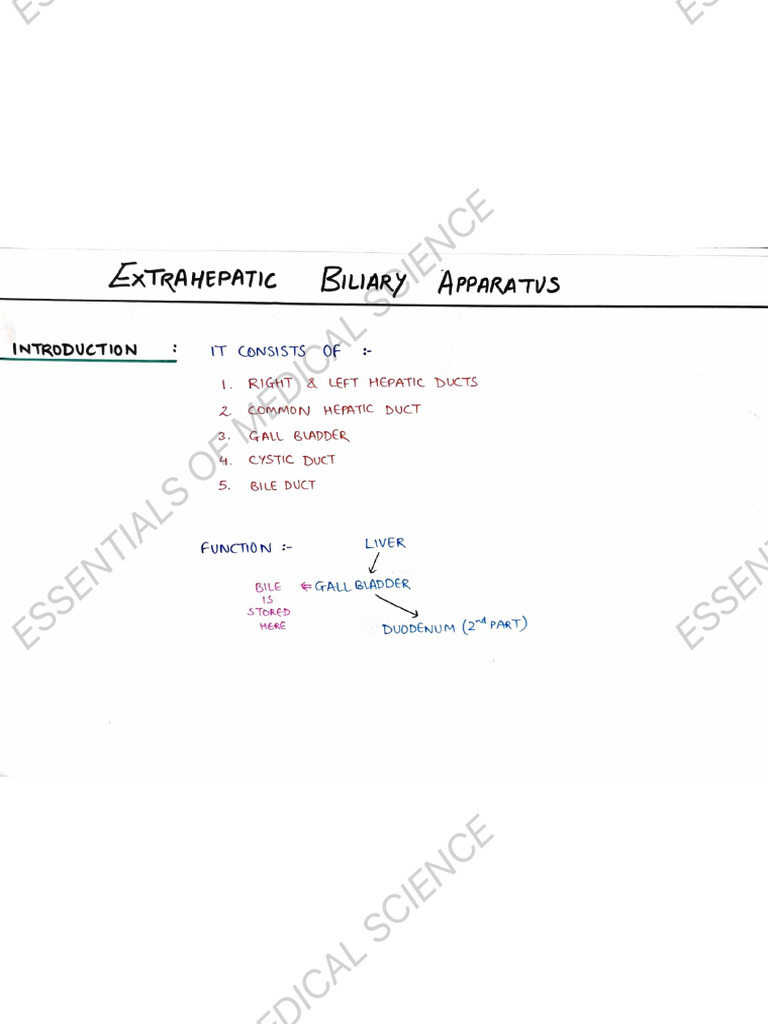 EXTRAHEPATIC BILIARY APPARATUS
INTRODUCTION : IT CONSISTS OF :-
1. RIGHT & LEFT HEPATIC DUCTS
2. COMMON HEPATIC DUCT
3. GALL BLADDER
4. CYSTIC DUCT
5. BILE DUCT
FUNCTION :- LIVER
BILE ⇐ GALL BLADDER
IS
STORED
HERE
DUODENUM (2nd PART)
ESSENTIALS OF MEDICAL SCIENCE
ESSEN
EDICAL SCIENCE
ES
ES